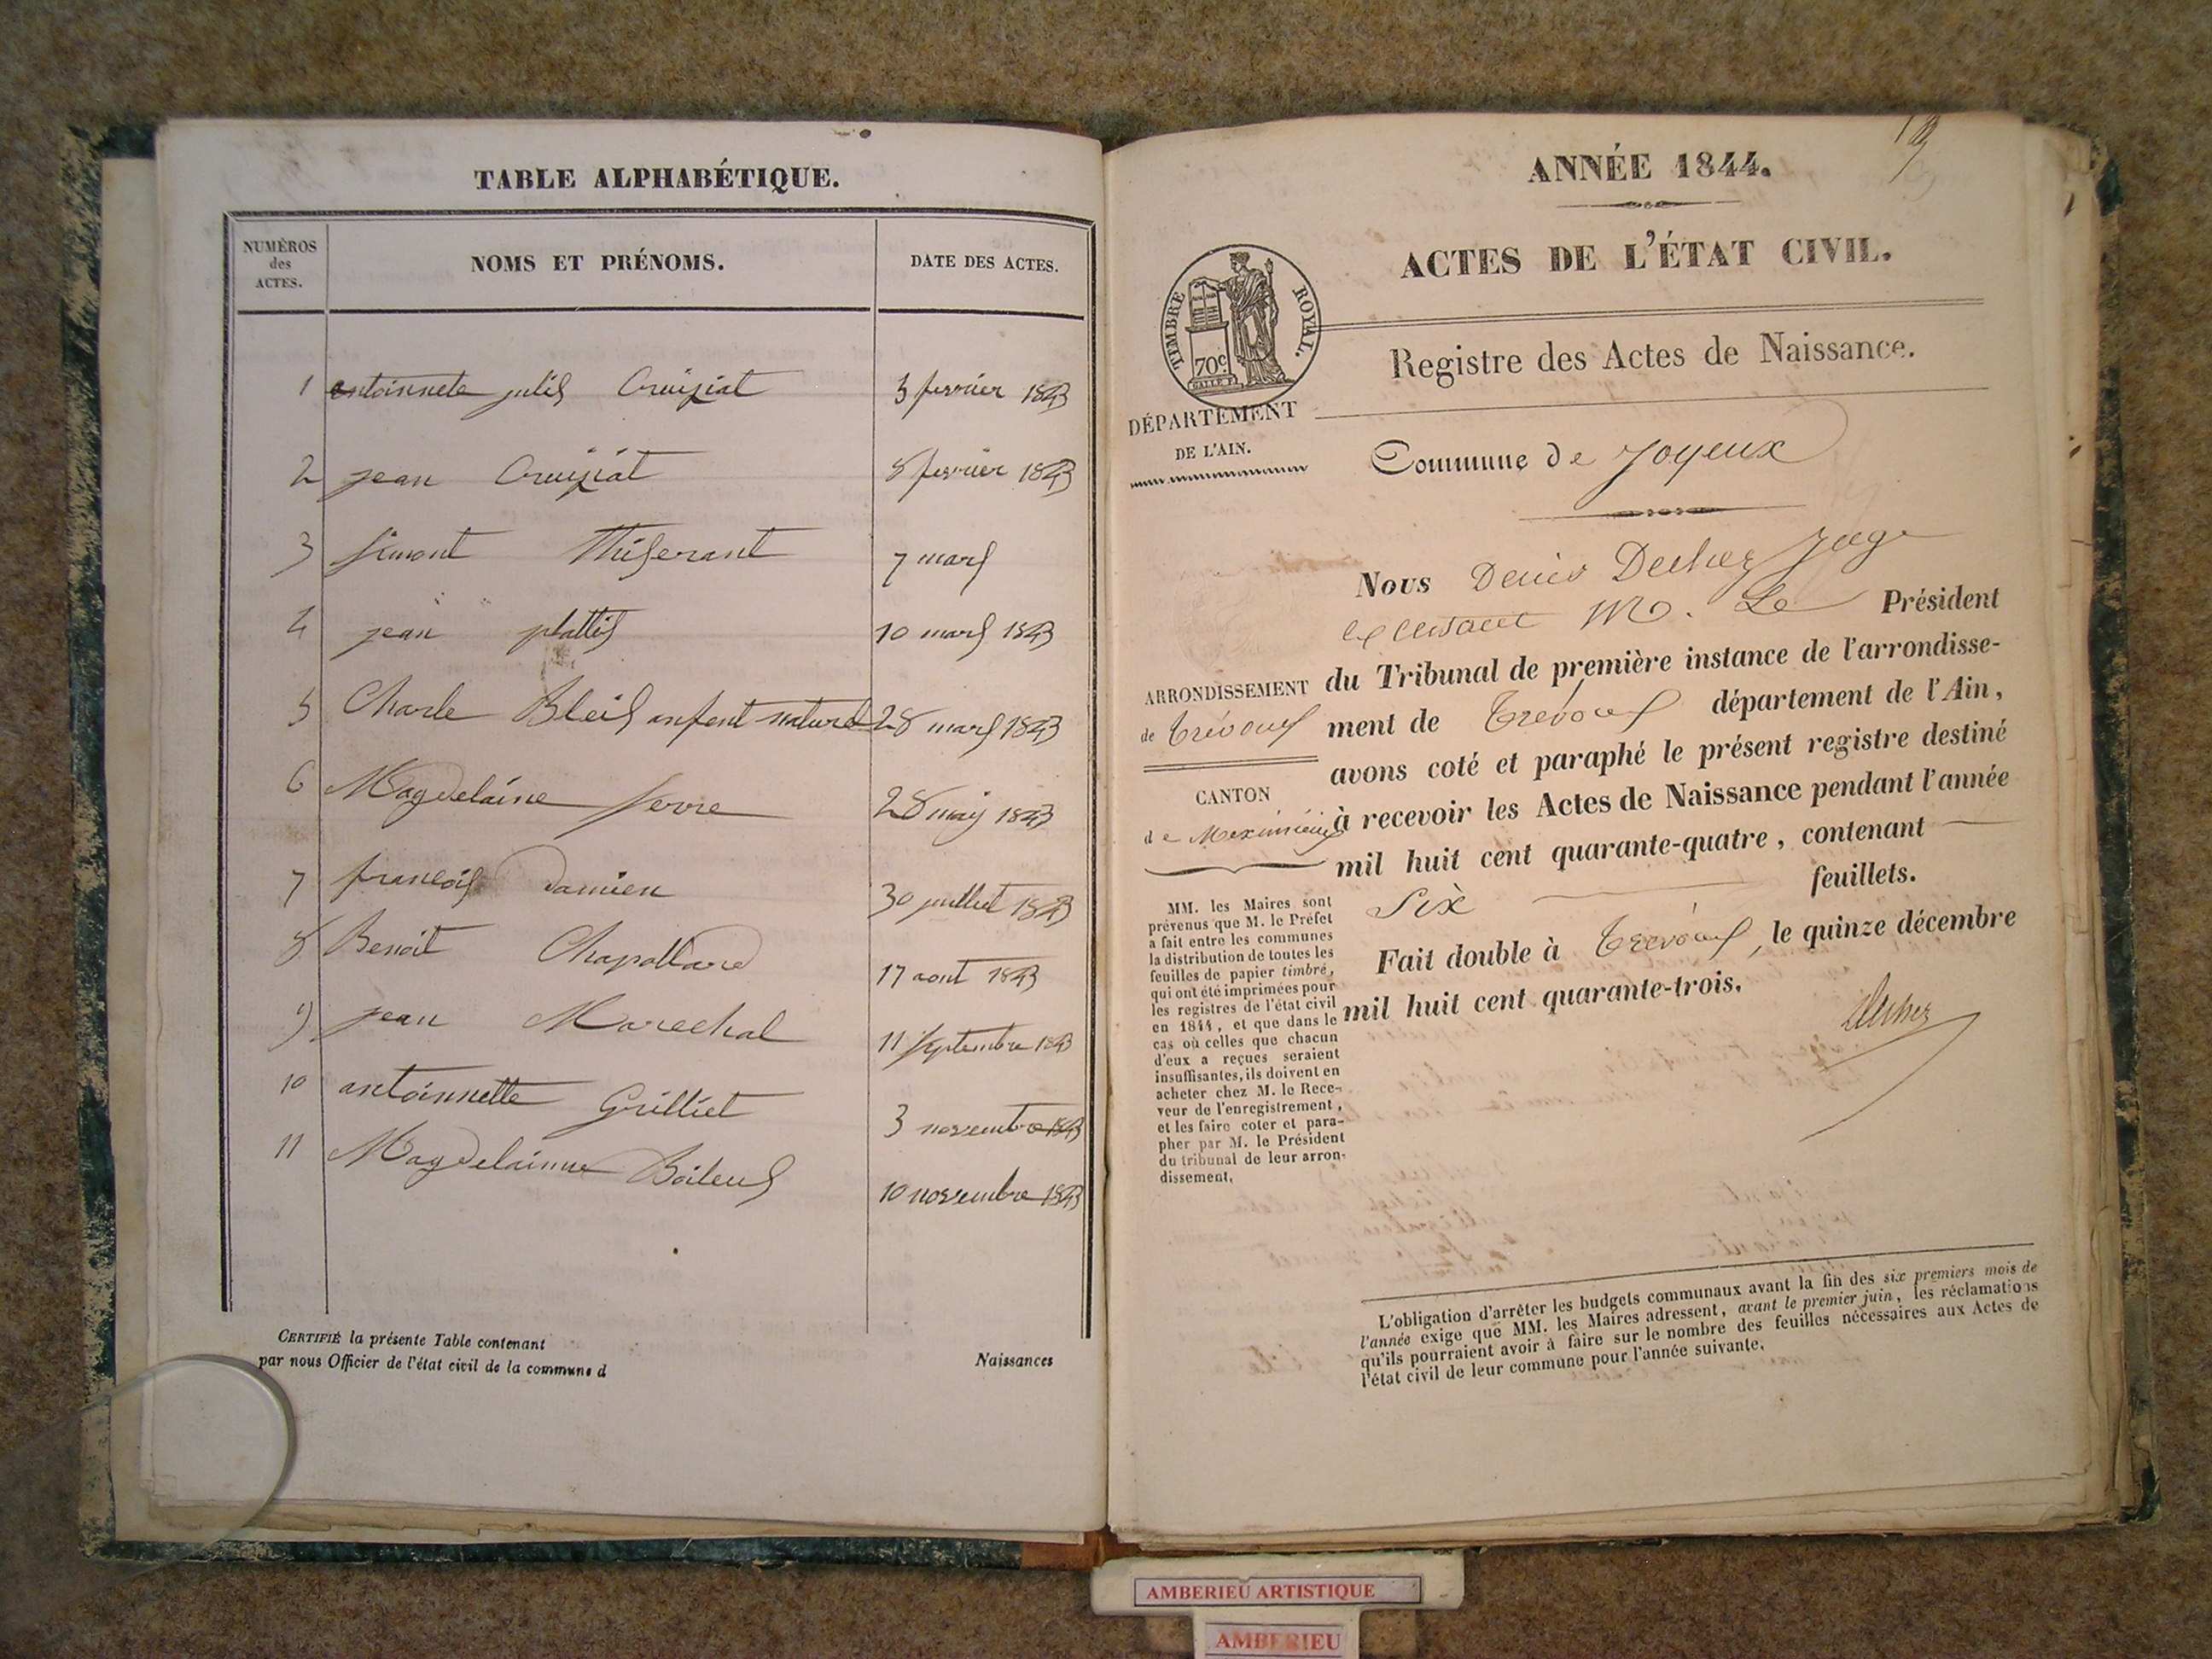 TABLE ALPHABÉTIQUE.
NUMÉROS
des
ACTES.
NOMS ET PRÉNOMS.
DATE DES ACTES.
1 antoinnete Cruiziat 3 fevrier 1843
2 jean Cruiziat 8 fevrier 1843
3 simont Thiserant 7 mars
4 jean plattis 10 mars 1843
5 Charle Bleis anfent naturel 28 mars 1843
6 Magdelaine serre 28 mai 1843
7 francois Damien 30 juillet 1843
8 Benoit Chapollard 17 aout 1843
9 jean Marechal 11 septembre 1843
10 antoinnette Grilliet 3 novembre 1843
11 Magdelainne Boileus 10 novembre 1843
CERTIFIÉ la présente Table contenant
Naissances
par nous Officier de l'état civil de la commune d
ANNÉE 1844.
ACTES DE L'ÉTAT CIVIL.
TIMBRE ROYAL.
70c
Registre des Actes de Naissance.
DÉPARTEMENT
DE L'AIN.
Commune de Joyeux
Nous Denis Dechez Juge
M. Le Président
du Tribunal de première instance de l'arrondisse-
ment de Trévoux département de l'Ain,
avons coté et paraphé le présent registre destiné
à recevoir les Actes de Naissance pendant l'année
mil huit cent quarante-quatre, contenant
Six feuillets.
Fait double à Trévoux, le quinze décembre
mil huit cent quarante-trois.
Dechez
ARRONDISSEMENT
de Trévoux
CANTON
de Meximieux
MM. les Maires sont
prévenus que M. le Préfet
a fait entre les communes
la distribution de toutes les
feuilles de papier timbré,
qui ont été imprimées pour
les registres de l'état civil
en 1844, et que dans le
cas où celles que chacun
d'eux a reçues seraient
insuffisantes, ils doivent en
acheter chez M. le Rece-
veur de l'enregistrement,
et les faire coter et para-
pher par M. le Président
du tribunal de leur arron-
dissement.
L'obligation d'arrêter les budgets communaux avant la fin des six premiers mois de
l'année exige que MM. les Maires adressent, avant le premier juin, les réclamations
qu'ils pourraient avoir à faire sur le nombre des feuilles nécessaires aux Actes de
l'état civil de leur commune pour l'année suivante.
AMBERIEU ARTISTIQUE
AMBERIEU